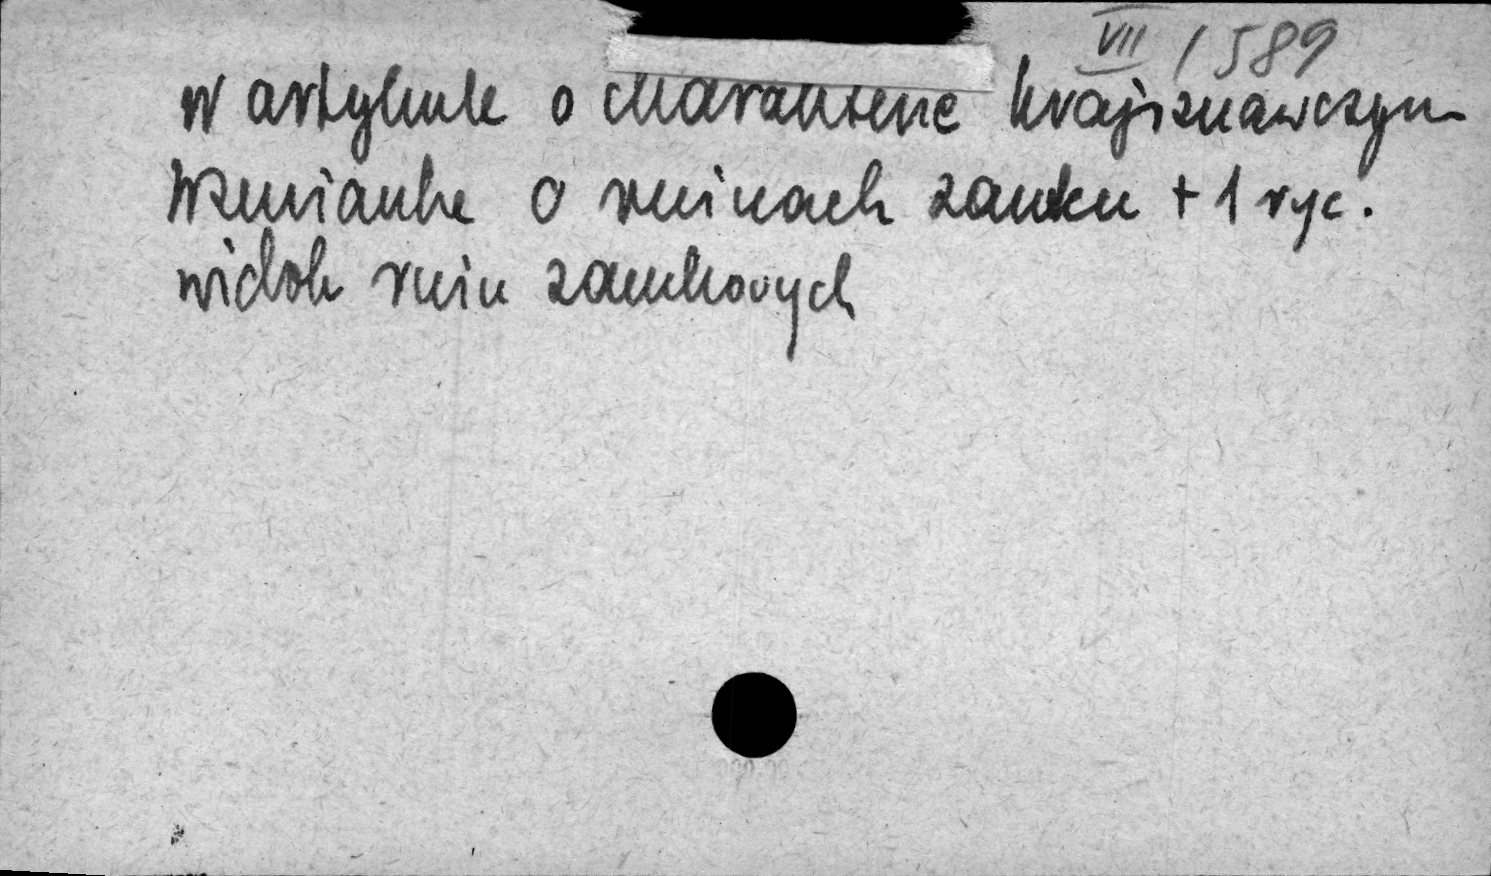 VII / 589
w artykule o charakterze krajoznawczym
wzmianka o ruinach zamku + 1 ryc.
widok ruin zamkowych